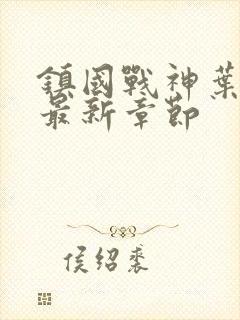 鎮國戰神葉
最新章節
侯紹裘